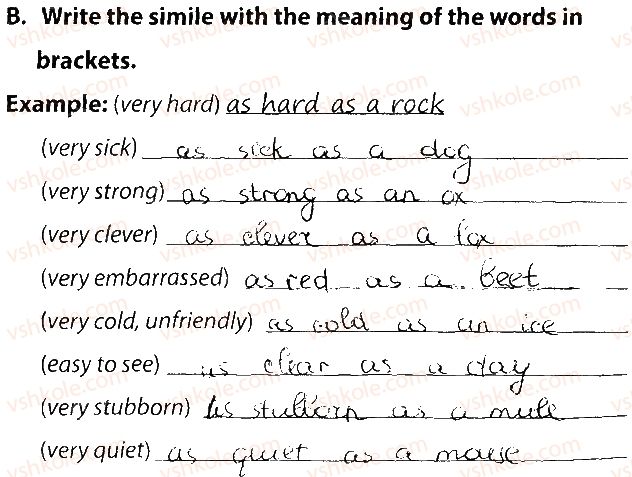 B. Write the simile with the meaning of the words in
brackets.
Example: (very hard) as hard as a rock
(very sick) as sick as a dog
(very strong) as strong as an ox
(very clever) as clever as a fox
(very embarrassed) as red as a beet
(very cold, unfriendly) as cold as an ice
(easy to see) as clear as a day
(very stubborn) As stubborn as a mule
(very quiet) as quiet as a mouse